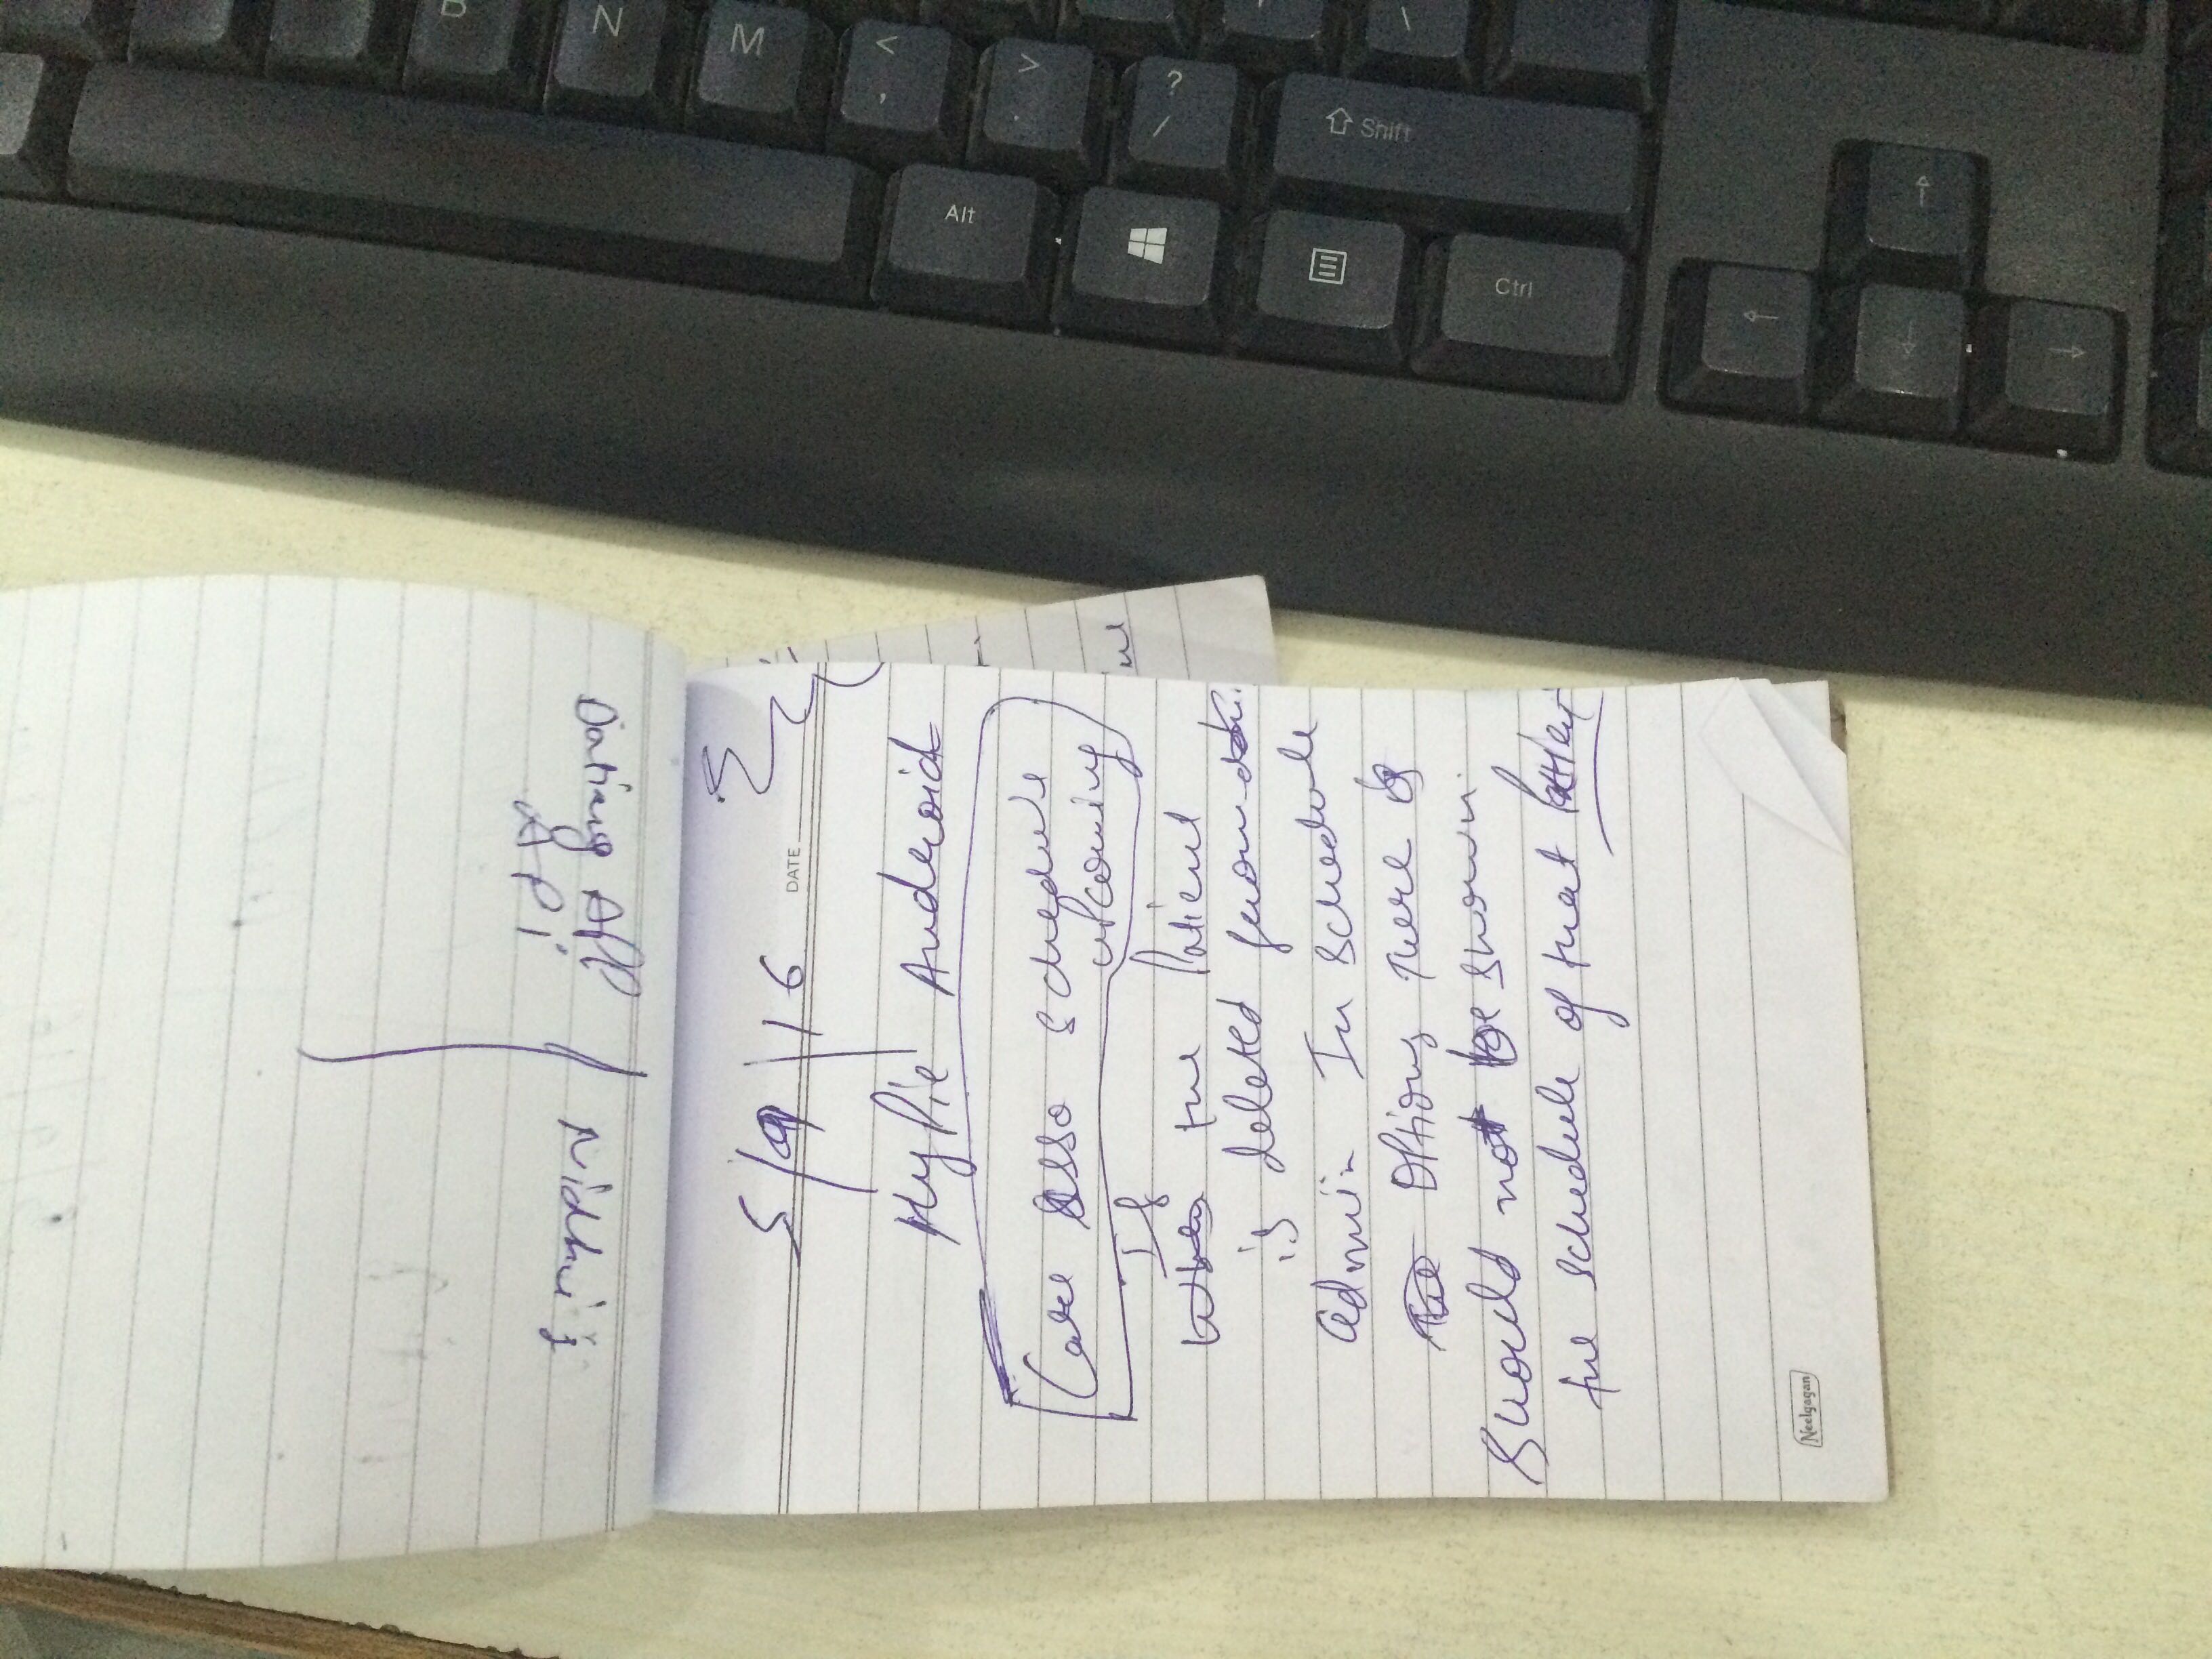 Dating App
Api
Nidhi's
5/9/16
DATE
MyPie Android
Care Asso schedule
upcoming
If
the Patient
is deleted from
Admin In schedule
Options There
should not be shown.
the schedule of that Patient
Neelgagan
ul
B
N
M
<
,
>
.
?
/
Alt
Shift
Ctrl
\